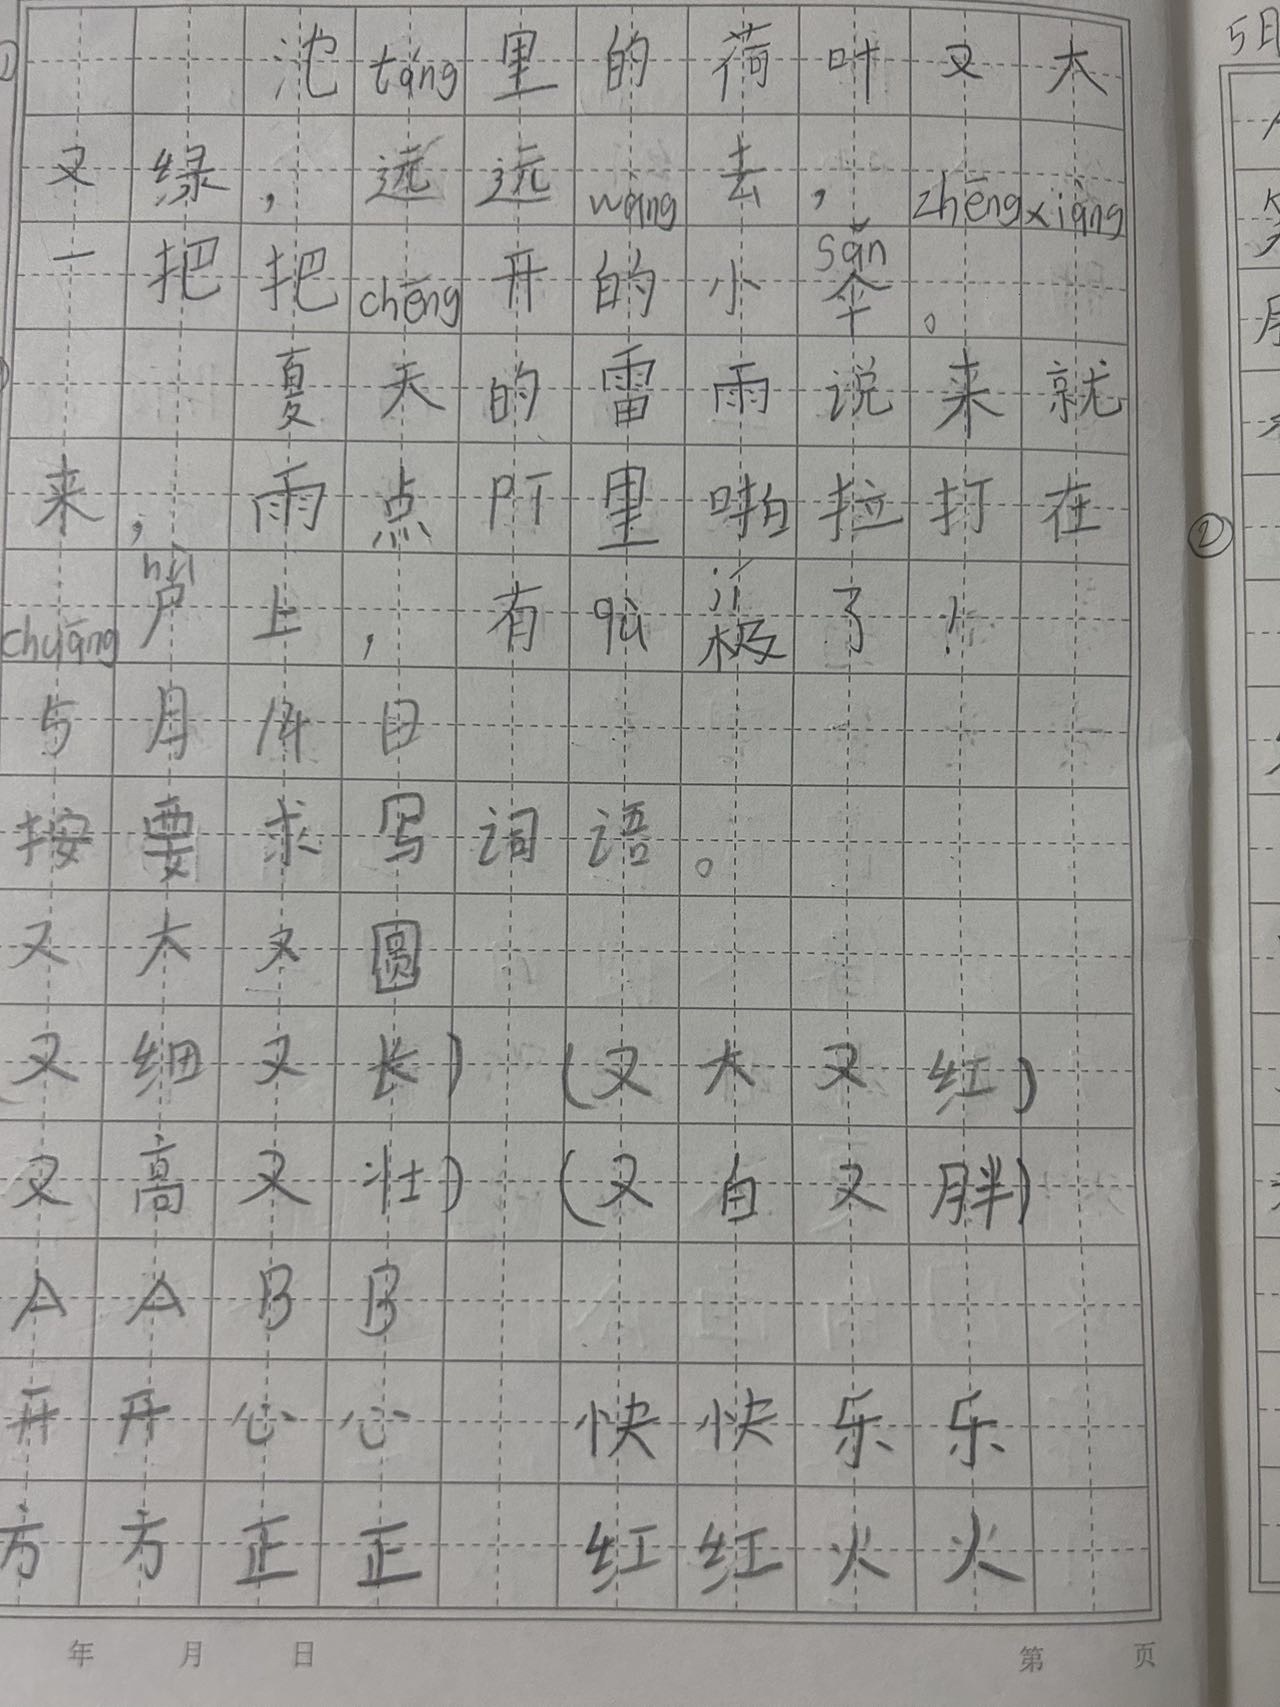 ① 池táng里的荷叶又大
又绿，远远wàng去，zhēngxiàng
一把把chēng开的小sǎn伞。
夏天的雷雨说来就
来，雨点噼里啪拉打在
chuāng户hù上，有qù极jí了！
5月14日
按要求写词语。
又大又圆
（又细又长）（又大又红）
（又高又壮）（又白又胖）
AABB
开开心心 快快乐乐
方方正正 红红火火
年 月 日 第 页
5月
②